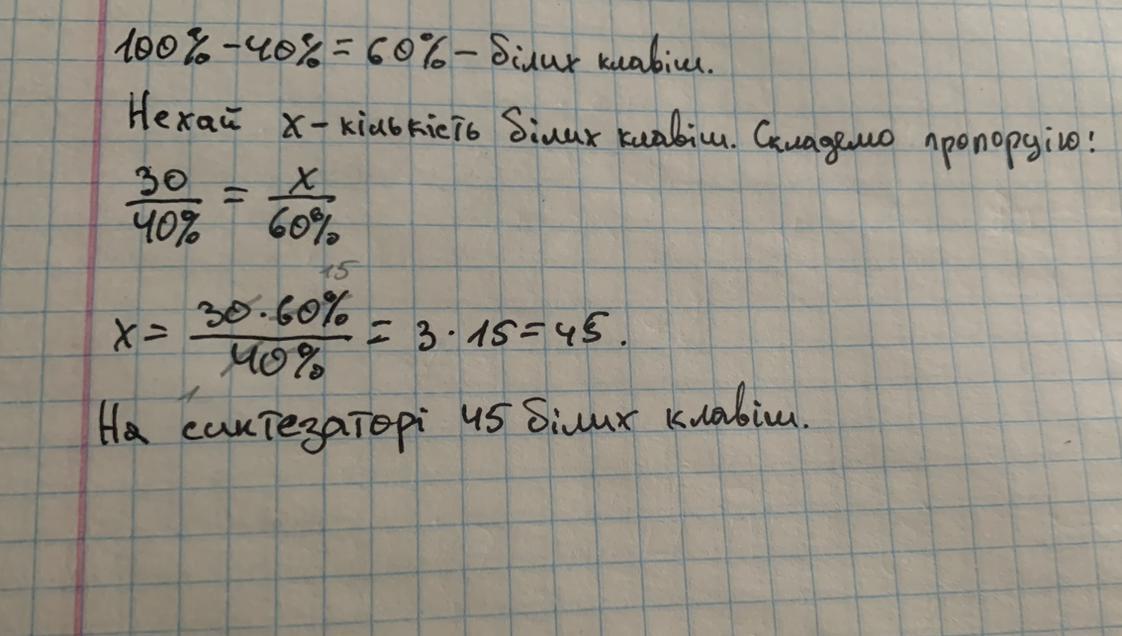 100% - 40% = 60% - білих клавіш.
Нехай x - кількість білих клавіш. Складемо пропорцію:
30/40% = x/60%
x = 30·60%/40% = 3·15 = 45.
15
1
На синтезаторі 45 білих клавіш.